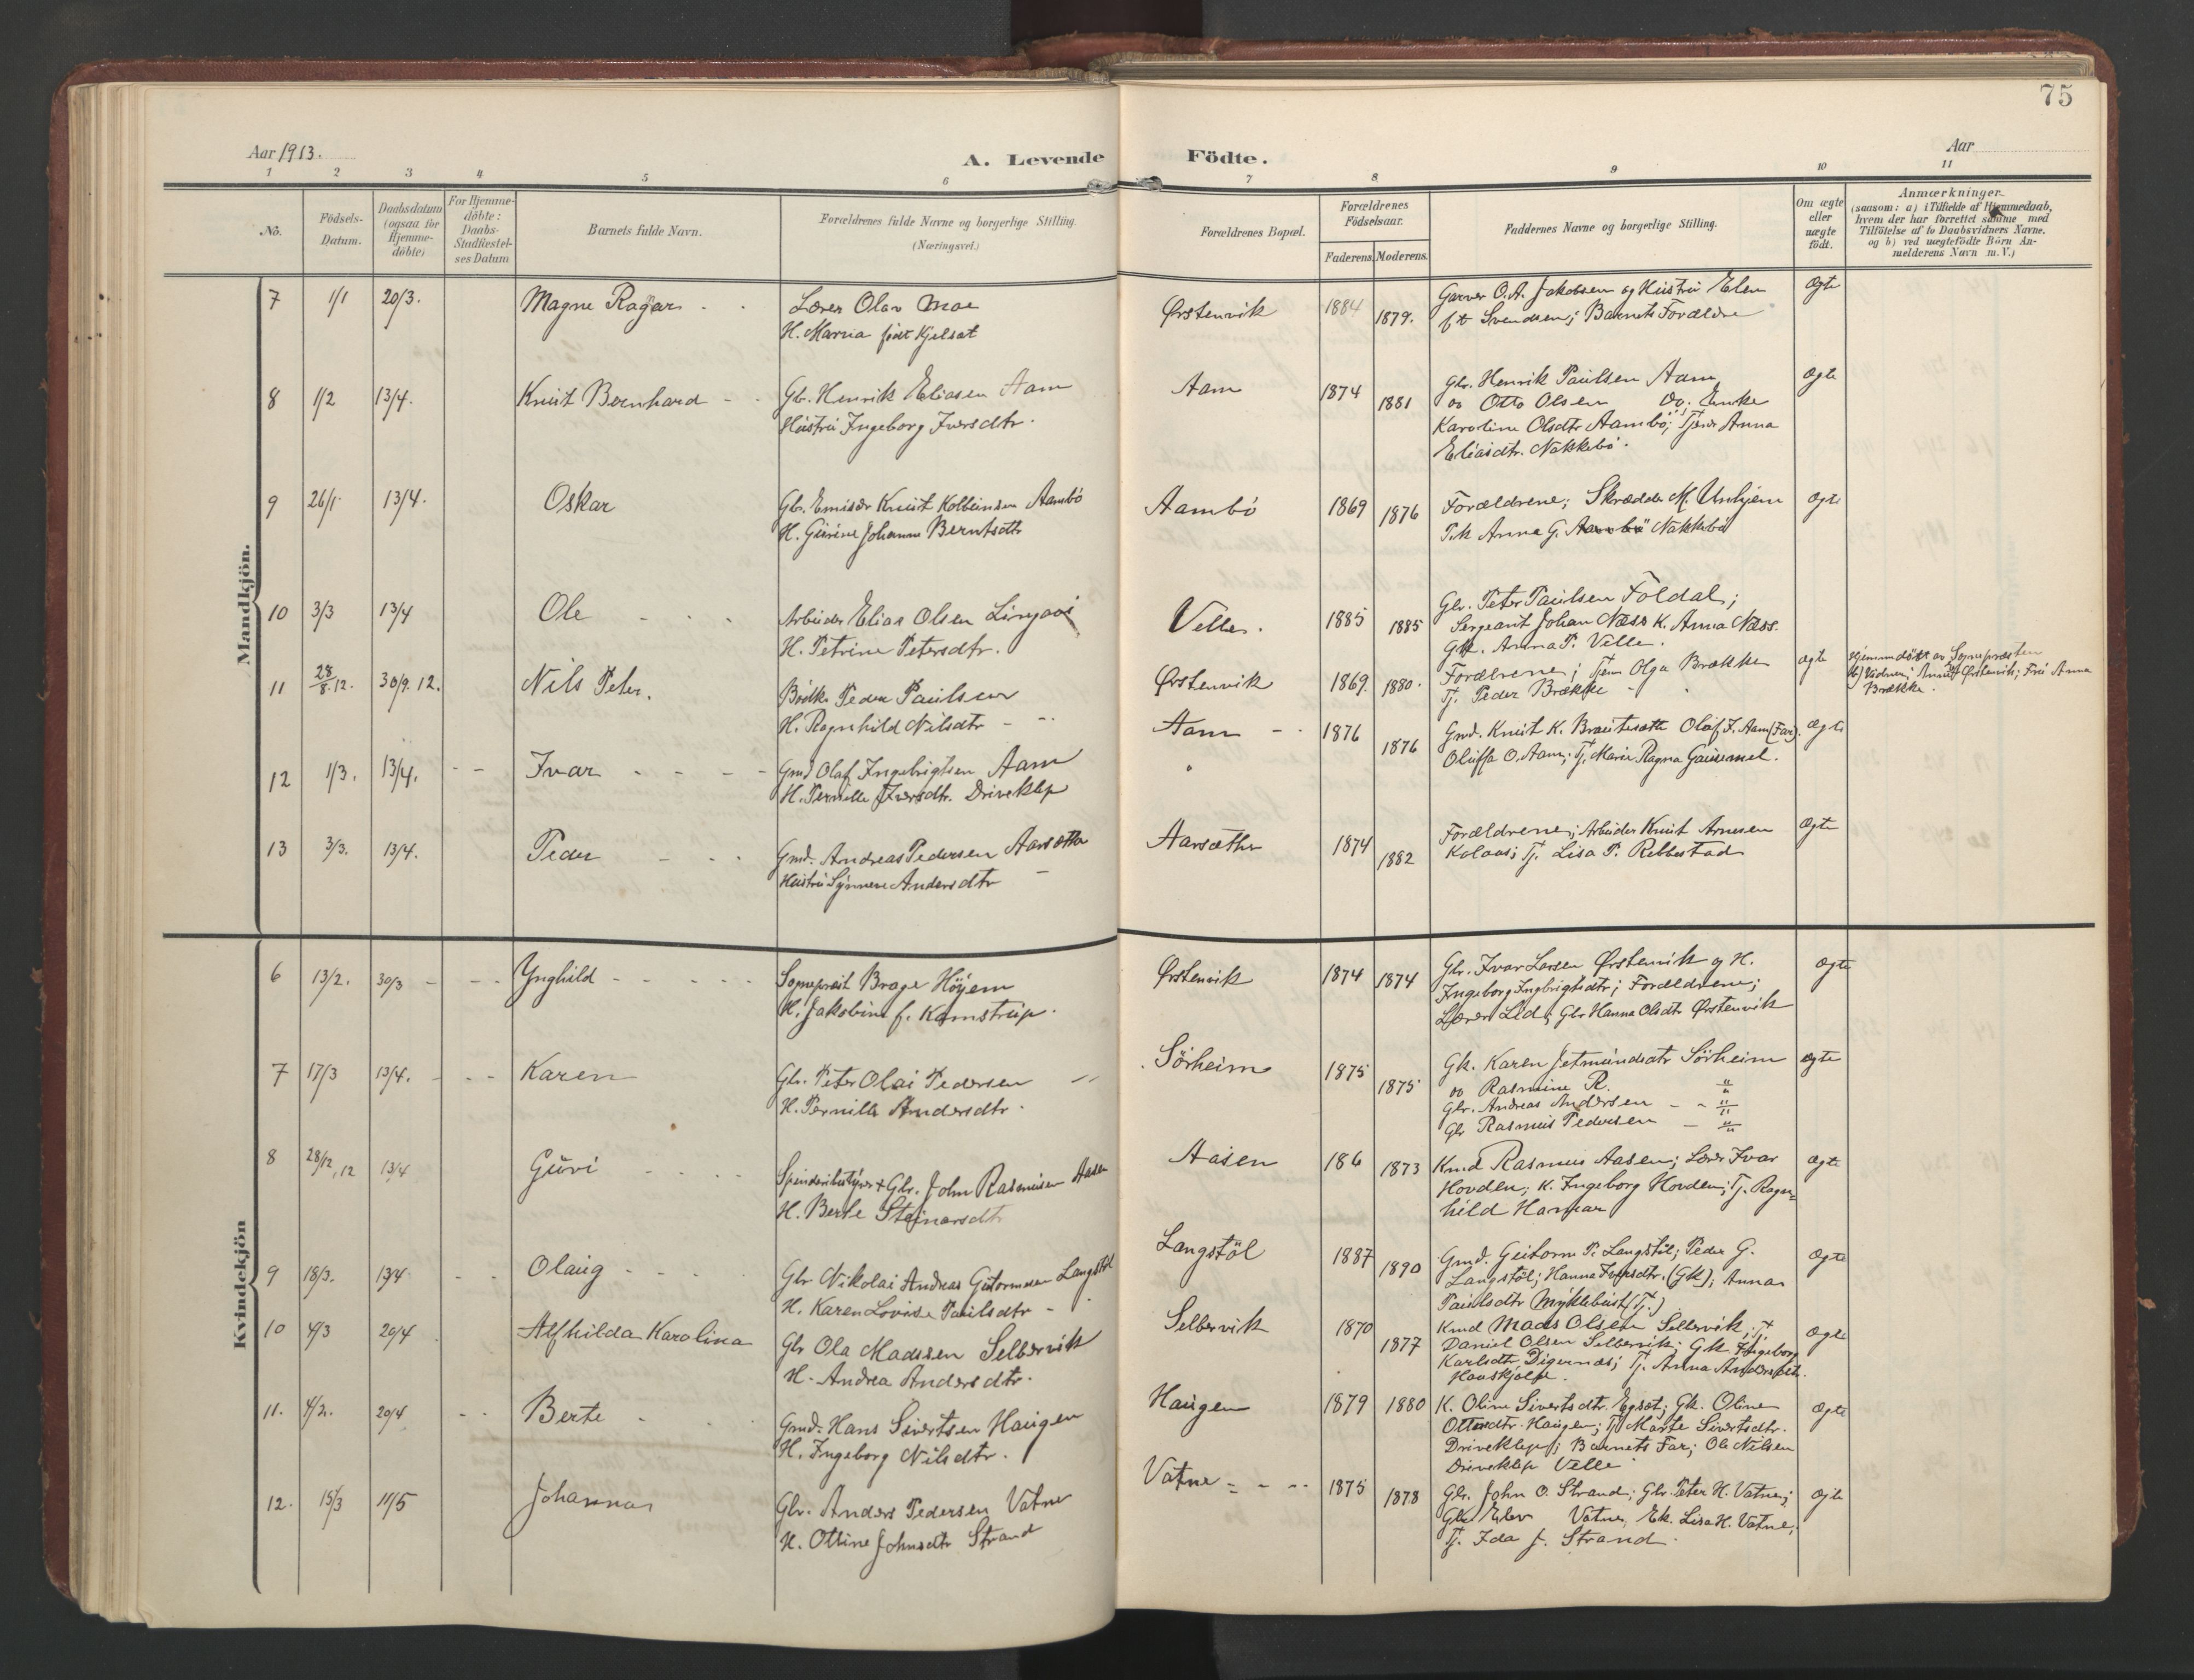 75
Aar 1913.
A. Levende Födte.
Aar
1 2 3 4 5 6 7 8 9 10 11
No.
Födsels-
Datum.
Daabsdatum
(ogsaa for
Hjemme-
döbte)
For Hjemme-
döbte:
Daabs-
Stadfæstel-
ses Datum
Barnets fulde Navn.
Forældrenes fulde Navne og borgerlige Stilling.
(Næringsvei.)
Forældrenes Bopæl.
Forældrenes
Födselsaar.
Faderens. Moderens.
Faddernes Navne og borgerlige Stilling.
Om ægte
eller
uægte
födt.
Anmærkninger.
(saasom: a) i Tilfælde af Hjemmedaab,
hvem der har forrettet samme med
Tilföielse af to Daabsvidners Navne.
og b) ved uægtefödte Börn An-
melderens Navn m.V.)
Mandkjön.
7 1/1 20/3. Magne Ragnar Lærer Olav Moe Ørstenvik 1884 1879. Garver O.A. Jakobsen og Hustru Elen Ægte
H. Marna født Kjelsat
ft Svendsen; Barnets Forældre
8 1/2 13/4. Knut Bernhard Gbr. Henrik Eliasen Aam Aam 1874 1881 Gbr. Henrik Paulsen Aam Ægte
Hustru Ingeborg Iversdtr.
og Otto Olsen Do. Enke
Karoline Olsdtr Aambö; Tjener Anna
Eliasdtr. Nakkebö.
9 26/1 13/4. Oskar Gbr. Emisær Knut Kolbeinsen Aambö Aambö 1869 1876 Forældrene; Skrædder M. Unhjem Ægte
H. Gurine Johanne Berntsdtr
Pik Anna G. Nakkebö
10 3/3 13/4 Ole Arbeider Elias Olsen Velle. 1885 1885 Gbr. Peter Paulsen Foldal;
H. Petrine Petersdtr.
Sergeant Johan Næss K. Anna Næss.
Gk. Anna P. Velle.
11 28/8.12. 30/9.12. Nils Peter. Peder Paulsen Ørstenvik 1869. 1880. Forældrene; Tjen Olga Brække ægte Hjemmedöbt av Sognepræsten
H. Ragnhild Nilsdtr
Tj. Peder Brække
Vidner; Ørstenvik; Fru Anna
Brække.
12 1/3. 13/4. Ivar Gmd Olaf Ingebrigtsen Aam Aam 1876 1876 Gmd. Knut K. Brautesætk Olaf I. Aam (Far). Ægte
H. Pernille Iversdtr. Driveklep
Oluffa O. Aam; Tj. Marie Ragna Gausemel.
13 3/3. 13/4. Peder Gmd. Andreas Pedersen Aarsætha Aarsæther 1874 1882 Forældrene; Arbeider Knut Arnesen Ægte
Hustru Synneve Andersdtr
Kolaas; Tj. Lisa P. Rebbestad
Kvindekjön
6 13/2. 30/3 Ynghild Sogneprest Brage Höjem Ørstenvik 1874 1874 Gbr. Ivar Larsen Ørstenvik og H. Ægte
H. Jakobine f. Kamstrup.
Ingeborg Ingbrigtsdtr; Forældrene;
Lærer Lid; Gbr Hanna Olsdtr Ørstenvik
7 17/3 13/4. Karen Gbr. Peter Olai Pedersen Sörheim 1875 1875 Gk. Karen Jetmundsdtr Sörheim ægte
H. Pernille Andersdtr.
og Rasmine R. "
Gbr. Andreas Andersen "
Gbr Rasmus Pedersen "
8 28/12.12 13/4 Guri Spinderibestyrer + Gbr. John Rasmusen Aasen Aasen 186 1873 Kmd Rasmus Aasen; Lærer Ivar ægte
H. Berte Steinarsdtr
Hovden; K. Ingeborg Hovden; Tj. Ragn-
hild Hamar
9 18/3. 13/4 Olaug Gbr Nikolai Andreas Gutormsen Langstöl Langstöl 1887 1890 Gmd. Guttorm P. Langstöl; Peder G. Ægte
H. Karen Lovise Paulsdtr
Langstöl; Hanna Iversdtr. (Gk); Anna
Paulsdtr Myklebust (Tj.)
10 4/3 20/4 Alfhilda Karolina Gbr Ola Madssen Selbervik Selbervik 1870 1877 Kmd Mads Olsen Selbervik; Tj. Ægte
H. Andrea Andersdtr.
Daniel Olsen Selbervik; Gk Ingeborg
Karlsdtr. Digernæs; Tj. Anna Andersdtr.
Haaskjolen.
11. 4/2. 20/4 Berte Gmd. Hans Sivertsen Haugen Haugen 1879 1880 K. Oline Sivertsdtr. Egset; Gk. Oline Ægte
H. Ingeborg Nilsdtr.
Ottesdtr. Haugen; Tj Marte Sivertsdtr.
Driveklep; Barnets Far; Ole Nilsen
Driveklep Velle
12. 15/3 11/5 Johanna Gbr. Anders Pedersen Vatne Vatne 1875 1878 Gbr. John O. Strand; Gbr. Peter H. Vatne; Ægte
H. Ottine Johnsdtr Strand
Vatne, Ek. Lisa H. Vatne;
Tj. Ida J. Strand.